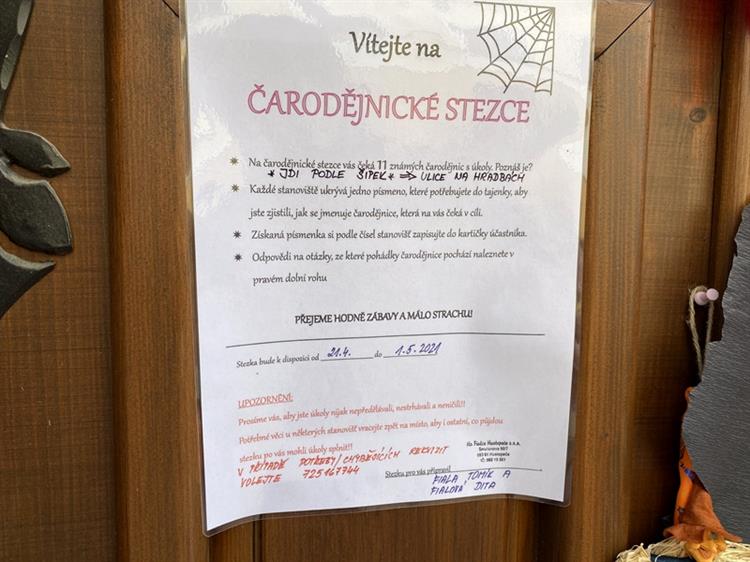 Vítejte na
ČARODĚJNICKÉ STEZCE
Na čarodějnické stezce vás čeká 11 známých čarodějnic s úkoly. Poznáš je?
* JDI PODLE ŠIPEK * => ULICE NA HRADBÁCH
Každé stanoviště ukrývá jedno písmeno, které potřebujete do tajenky, aby
jste zjistili, jak se jmenuje čarodějnice, která na vás čeká v cíli.
Získaná písmenka si podle čísel stanovišť zapisujte do kartičky účastníka.
Odpovědi na otázky, ze které pohádky čarodějnice pochází naleznete v
pravém dolní rohu
PŘEJEME HODNĚ ZÁBAVY A MÁLO STRACHU!
Stezka bude k dispozici od 21.4. do 1.5.2021
UPOZORNĚNÍ:
Prosíme vás, aby jste úkoly nijak nepředělávali, nestrhávali a neničili!!
Potřebné věci u některých stanovišť vracejte zpět na místo, aby i ostatní, co půjdou
stezku po vás mohli úkoly splnit!!
V PŘÍPADĚ POTŘEBY/CHYBĚJÍCÍCH REKVIZIT
VOLEJTE 725167744
Stezku pro vás připravil
FIALA TOMÍK A
FIALOVÁ DITA